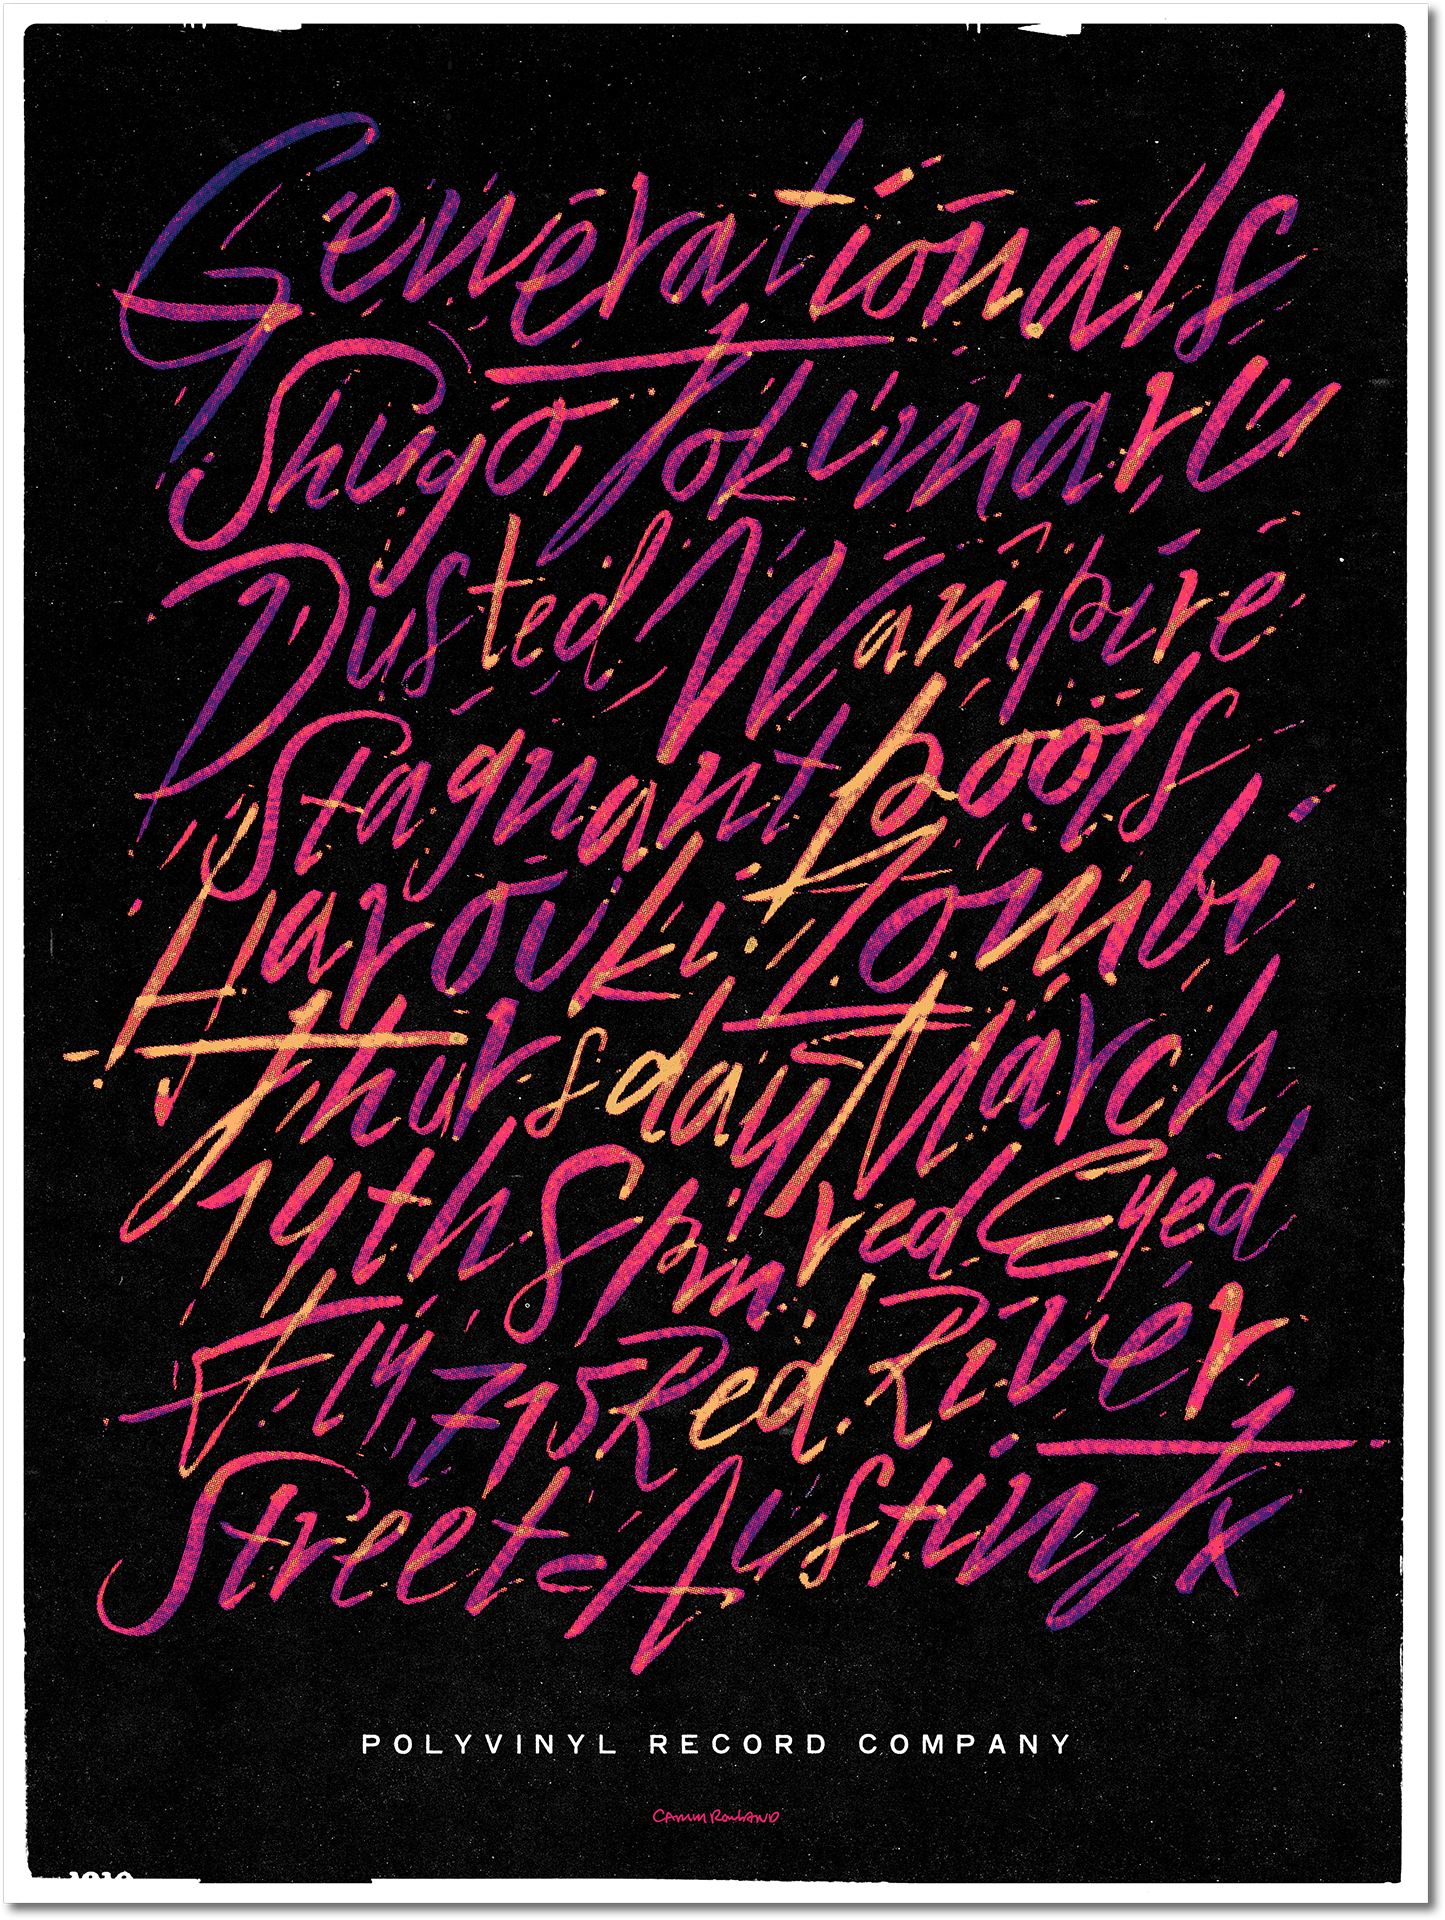 Generationals
Shugo Tokumaru
Dusted, Wampire
Stagnant pools
Harouki Zombi
Thursday March
14th 8pm. red Eyed
Fly, 715 Red River
Street - Austin Tx
POLYVINYL RECORD COMPANY
CAMM ROWLAND